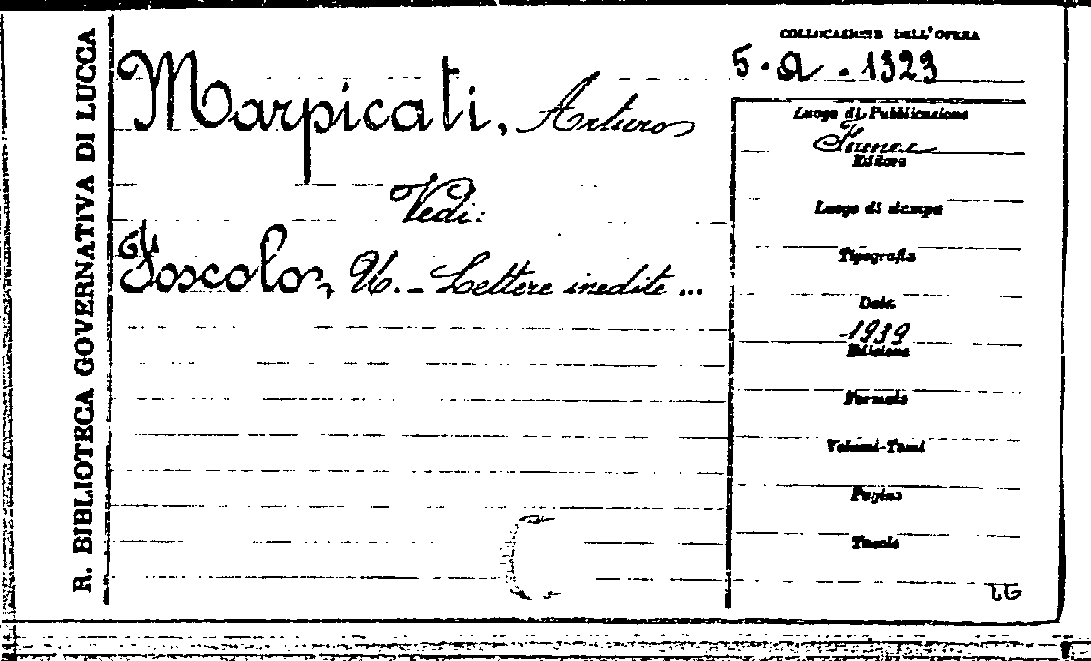 R. BIBLIOTECA GOVERNATIVA DI LUCCA
Marpicati, Arturo
Vedi:
Foscolo, U. - Lettere inedite ...
COLLOCAZIONE DELL'OPERA
5 - a - 1323
Luogo di Pubblicazione
Editore
Luogo di stampa
Tipografia
Data
1939
Edizione
Formato
Volumi-Tomi
Pagine
Tavole